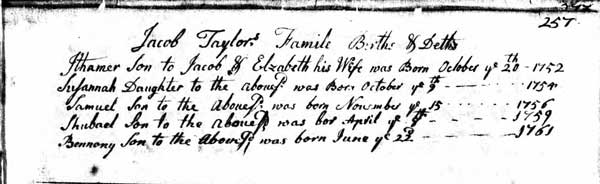 257
Jacob Taylors Famile Births & Deths
Ithamer Son to Jacob & Elzabeth his Wife was Born October ye 20th - 1752
Susannah Daughter to the abovesd. was Born October ye 9th - 1754
Samuel Son to the Abovesd. was born November ye 15 - 1756
Shubael Son to the abovesd. was bor April ye th - 1759
Bennony Son to the Abovesd. was born June ye 23 - 1761